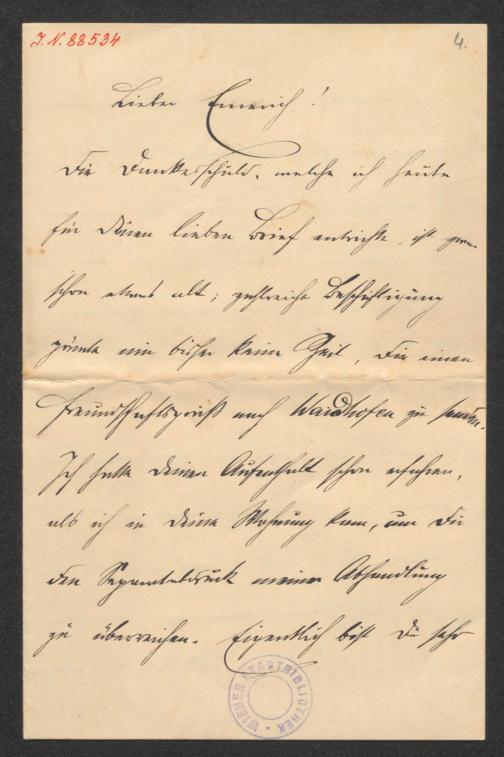 J. N. 88534
4.
Lieber Emerich!
Die Dankesschuld, welche ich heute
für Deinen lieben Brief entrichte, ist zwar
schon etwas alt; zahlreiche Beschäftigung
gönnte mir bisher keine Zeit, Dir einen
Freundschaftsgruß nach Waidhofen zu senden.
Ich hatte Deinen Aufenthalt schon erfahren,
als ich in Deine Wohnung kam, um Dir
den Separatabdruck meiner Abhandlung
zu überreichen. Eigentlich bist Du sehr
WIENER STADTBIBLIOTHEK